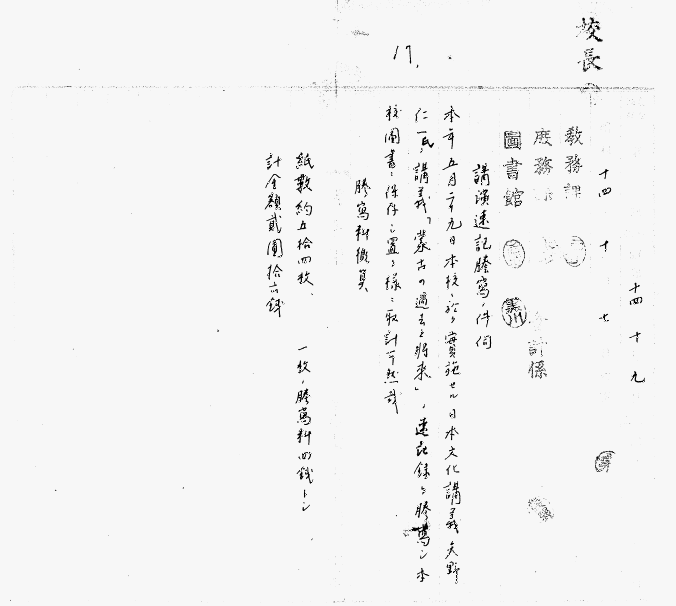 校長
17.
十四 十 九
十四 十 七
教務課
庶務
會計係
圖書館
講演速記謄寫ノ件伺
本年五月二十九日本校ニ於テ實施セル日本文化講義矢野
仁一氏ノ講義「蒙古の過去と将来」ノ速記録ヲ謄寫シ本
校圖書ニ保存シ置ク様ニ取計可然哉
謄寫料概算
紙數約五拾四枚、 一枚ノ謄寫料四錢トシ
計金額貳圓拾六錢